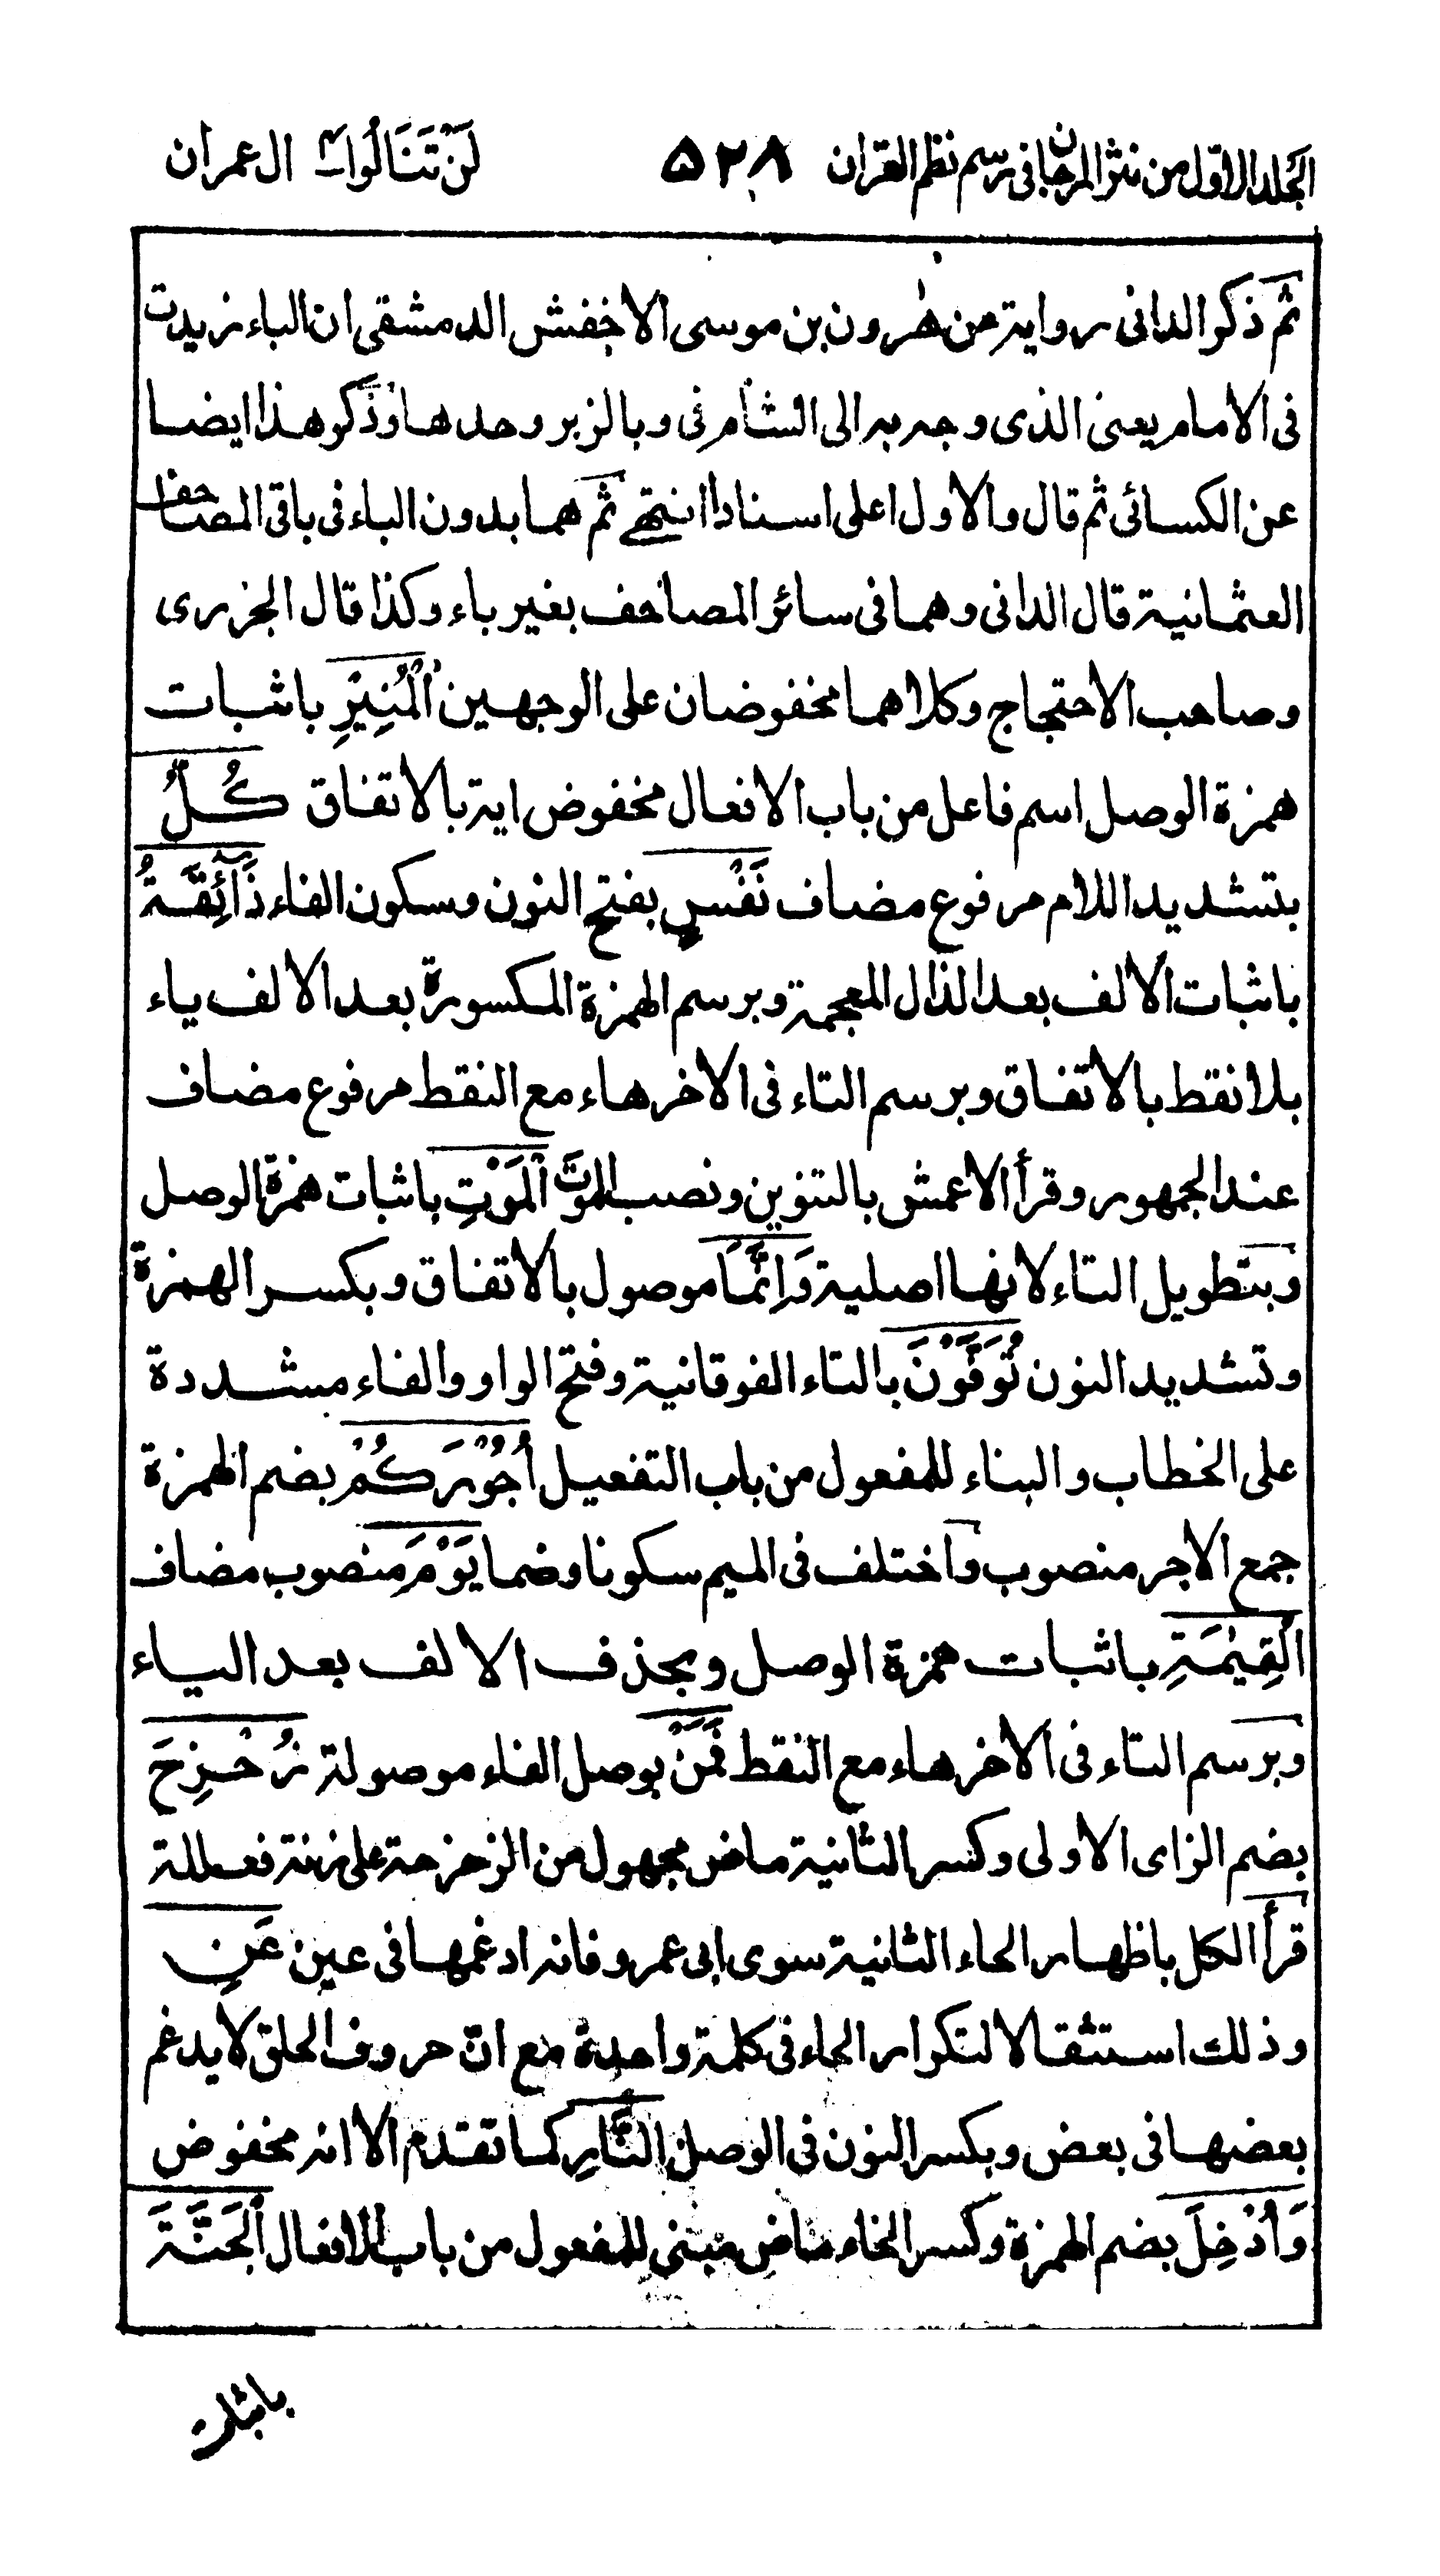 المجلد الاول من نثر المرجان فى رسم نظم القران ٥٢٨ لَنْ تَنَالُوا ٤ ال عمران
ثم ذكر الدانى رواية من هٰرون بن موسى الاخفش الدمشقى ان الباء زيدت
فى الامام يعنى الذى وجه به الى الشام فى وبالزبر وحدها وذكر هذا ايضا
عن الكسائى ثم قال والاول اعلى اسنادا انتهى ثم هما بدون الباء فى باقى المصاحف
العثمانية قال الدانى وهما فى سائر المصاحف بغير باء وكذا قال الجزرى
وصاحب الاحتجاج وكلاهما مخفوضان على الوجهين الْمُنِيْرِ باثبات
همزة الوصل اسم فاعل من باب الافعال مخفوض اية بالاتفاق كُلُّ
بتشديد اللام مرفوع مضاف نَفْسٍ بفتح النون وسكون الفاء ذَآئِقَةُ
باثبات الالف بعد الذال المعجمة وبرسم الهمزة المكسورة بعد الالف ياء
بلا نقط بالاتفاق وبرسم التاء فى الاخر هاء مع النقط مرفوع مضاف
عند الجمهور وقرأ الاعمش بالتنوين ونصب الموتَ الْمَوْتِ باثبات همزة الوصل
وبتطويل التاء لانها اصلية وَاِنَّمَا موصول بالاتفاق وبكسر الهمزة
وتشديد النون تُوَفَّوْنَ بالتاء الفوقانية وفتح الواو والفاء مشددة
على الخطاب والبناء للمفعول من باب التفعيل اُجُوْرَكُمْ بضم الهمزة
جمع الاجر منصوب واختلف فى الميم سكونا وضما يَوْمَ منصوب مضاف
الْقِيٰمَةِ باثبات همزة الوصل وبحذف الالف بعد الياء
وبرسم التاء فى الاخر هاء مع النقط فَمَنْ بوصل الفاء موصولة زُحْزِحَ
بضم الزاى الاولى وكسر الثانية ماض مجهول من الزحزحة على زنة فعللة
قرأ الكل باظهار الحاء الثانية سوى ابى عمرو فانه ادغمها فى عين عَنِ
وذلك استثقالا لتكرار الحاء فى كلمة واحدة مع انّ حروف الحلق لا يدغم
بعضها فى بعض وبكسر النون فى الوصل النَّارِ كما تقدم الا انه مخفوض
وَاُدْخِلَ بضم الهمزة وكسر الخاء ماض مبنى للمفعول من باب الافعال الْجَنَّةَ
باثبات